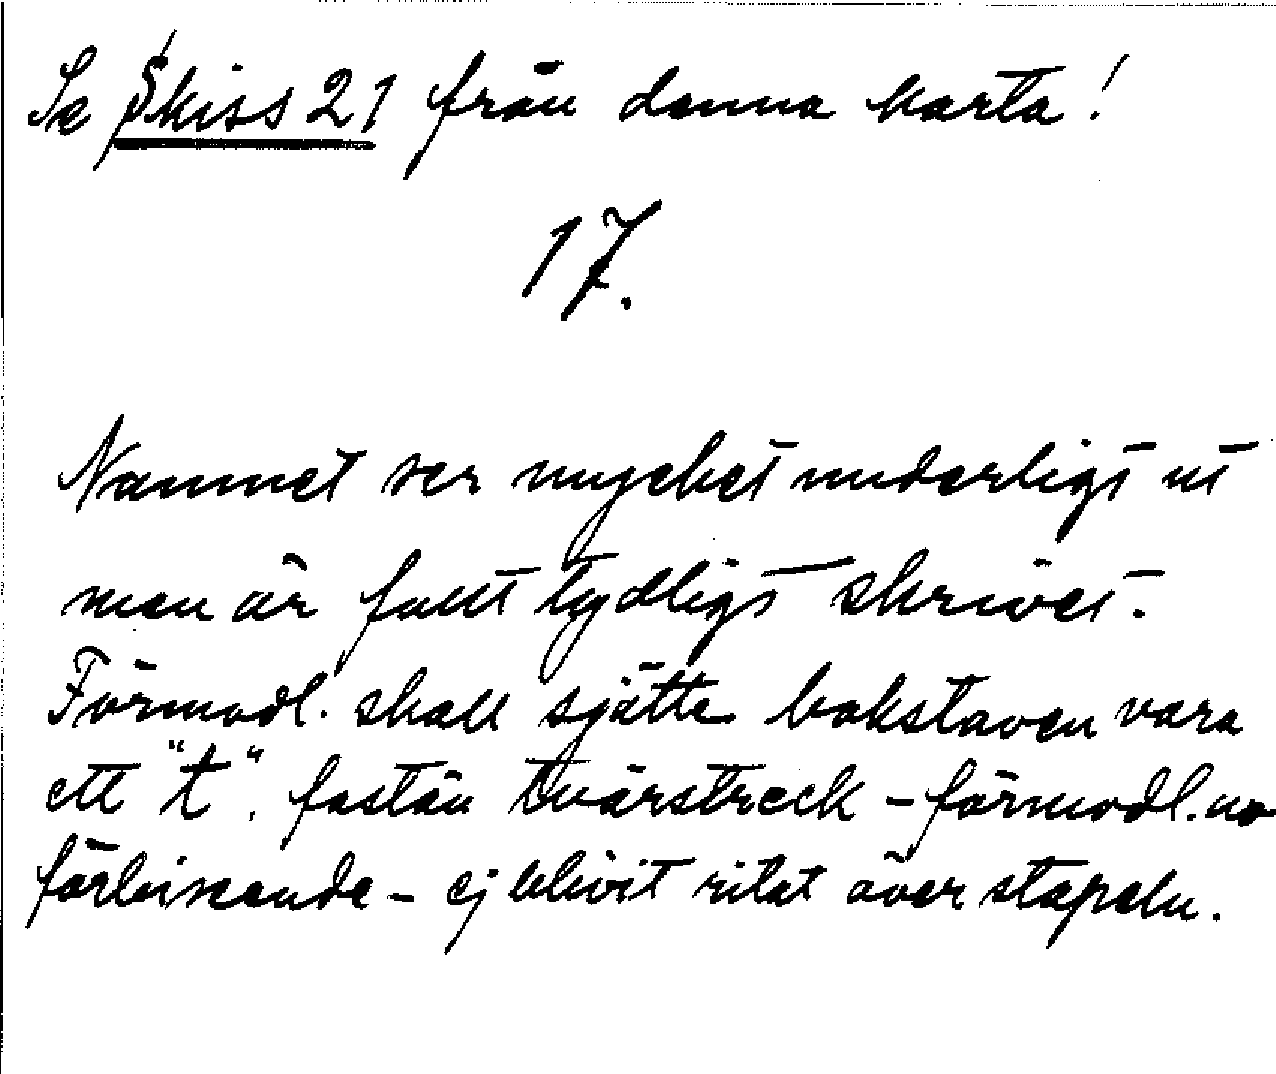 Se Skiss 21 från denna karta!
17.
Namnet ser mycket underligt ut
men är fullt tydligt skrivet.
Förmodl. skall sjätte bokstaven vara
ett "t", fastän tvärstreck - förmodl.
förbiseende - ej blivit ritat över stapeln.